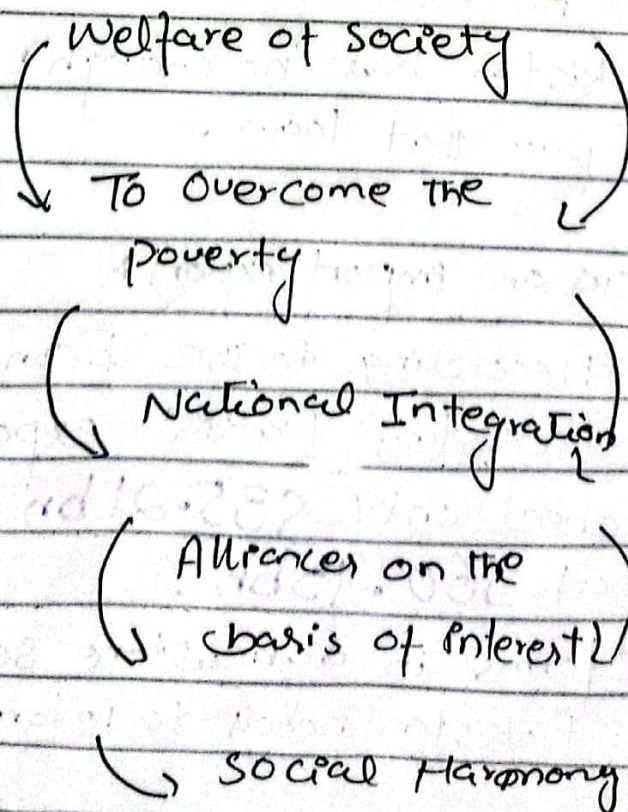 Welfare of society
To Overcome the
poverty
National Integration
Alliances on the
basis of interest
Social Harmony